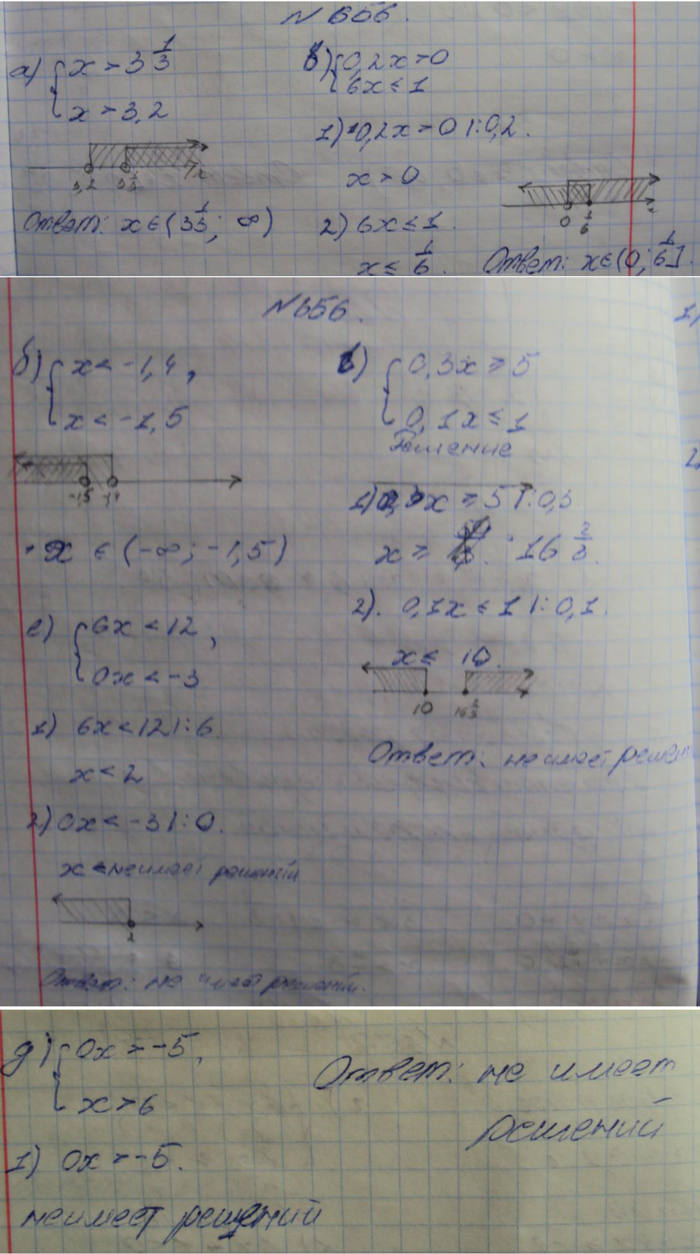 N 656.
а) { x > 3 1/3
x > 3,2
3,2 3 1/3 x
Ответ: x ∈ (3 1/3; ∞)
в) { 0,2x > 0
6x ≤ 1
1) 0,2x > 0 |:0,2.
x > 0
2) 6x ≤ 1.
x ≤ 1/6.
0 1/6
Ответ: x ∈ (0; 1/6].
N 656.
б) { x < -1,4,
x < -1,5
-1,5 -1,4
x ∈ (-∞; -1,5)
е) { 6x < 12,
0x < -3
1) 6x < 12 |:6
x < 2
2) 0x < -3 |:0.
x < неимает решений
2
Ответ: не имеет решений.
{ 0,3x ≥ 5
0,1x ≤ 1
Решение
1) 0,3x ≥ 5 |:0,3
x ≥ 16 2/3.
2). 0,1x ≤ 1 |:0,1.
x ≤ 10.
10 16 2/3
Ответ: не имеет решен
д) { 0x > -5,
x > 6
1) 0x > -5.
неимеет решений
Ответ: не имеет
решений